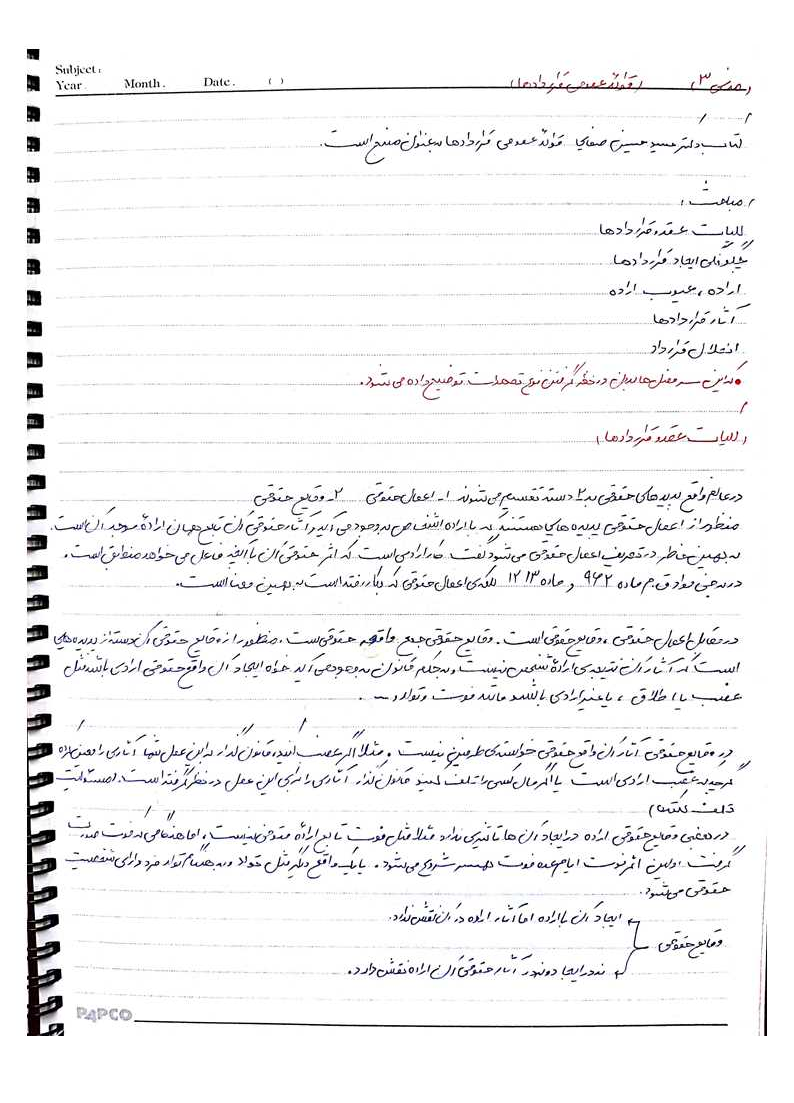 Subject:
Year. Month. Date. ( )
(مدنی ۳) (قواعد عمومی قراردادها)
کتاب دکتر سید حسین صفایی قواعد عمومی قراردادها به عنوان منبع است.
مباحث:
کلیات عقد و قراردادها
چگونگی ایجاد قراردادها
اراده، عیوب اراده
آثار قراردادها
انحلال قرارداد
• که این سرفصل ها بدون در نظر گرفتن نوع تعهدات توضیح داده می شود.
(کلیات عقد و قراردادها)
در عالم واقع پدیده های حقوقی به ۲ دسته تقسیم می شوند ۱- اعمال حقوقی ۲- وقایع حقوقی
منظور از اعمال حقوقی پدیده هایی هستند که با اراده اشخاص به وجود می آید و آثار حقوقی آن تابع همان اراده موجد آن است.
به همین خاطر در تعریف اعمال حقوقی می شود گفت کار ارادی است که اثر حقوقی آن با آنچه فاعل می خواهد منطبق است.
در برخی مواد ق.م ماده ۹۶۲ و ماده ۱۲۱۳ کلمه ی اعمال حقوقی که بکار رفته است به همین معنا است.
در مقابل اعمال حقوقی، وقایع حقوقی است. وقایع حقوقی جمع واقعه حقوقی ست، منظور از وقایع حقوقی آن دسته از پدیده های
است که آثار آن نتیجه ی اراده شخص نیست و به حکم قانون به وجود می آید خواه ایجاد آن واقعه حقوقی ارادی باشد مثل
غصب یا اطلاق، یا غیر ارادی باشد مانند فوت و تولد و ...
در وقایع حقوقی آثار آن واقعه حقوقی خواسته ی طرفین نیست، مثلا اگر غصب کنید، قانون گذار به این عمل شما آثاری را
گرچه به غصب ارادی است یا اگر مال کسی را تلف کنید قانون گذار آثاری را برای این عمل در نظر گرفته است. (مسئولیت
تلف کننده)
در بعضی وقایع حقوقی اراده در ایجاد آن ها تاثیری ندارد مثلا مثل فوت تابع اراده متوفی نیست، اما هنگامی که فوت صورت
گرفت، اولین اثر فوت ایام عده فوت همسر شروع می شود. یا یک واقعه دیگر مثل تولد و به هنگام تولد فرد دارای شخصیت
حقوقی می شود.
ایجاد آن با اراده اما آثار اراده در آن نقش ندارد.
وقایع حقوقی
نه در ایجاد و نه در آثار حقوقی آن اراده نقش دارد.
PAPCO